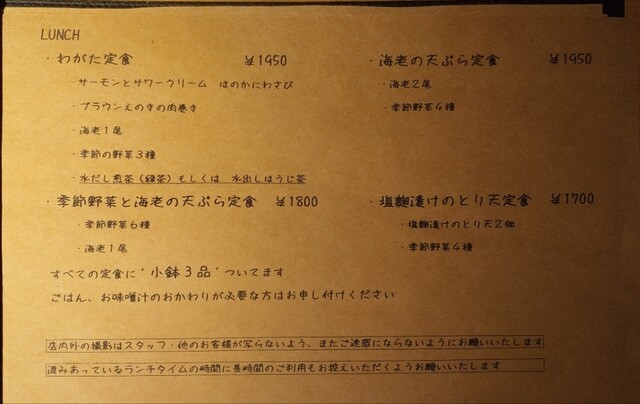 LUNCH
・わがた定食 ¥1950
・サーモンとサワークリーム ほのかにわさび
・ブラウンえのきの肉巻き
・海老1尾
・季節の野菜3種
・水だし煎茶(緑茶)もしくは 水出しほうじ茶
・海老の天ぷら定食 ¥1950
・海老2尾
・季節野菜4種
・季節野菜と海老の天ぷら定食 ¥1800
・季節野菜6種
・海老1尾
・塩麹漬けのとり天定食 ¥1700
・塩麹漬けのとり天2個
・季節野菜4種
すべての定食に'小鉢3品'ついてます
ごはん、お味噌汁のおかわりが必要な方はお申し付けください
店内外の撮影はスタッフ・他のお客様が写らないよう、またご迷惑にならないようにお願いいたします
混みあっているランチタイムの時間に長時間のご利用もお控えいただくようお願いいたします